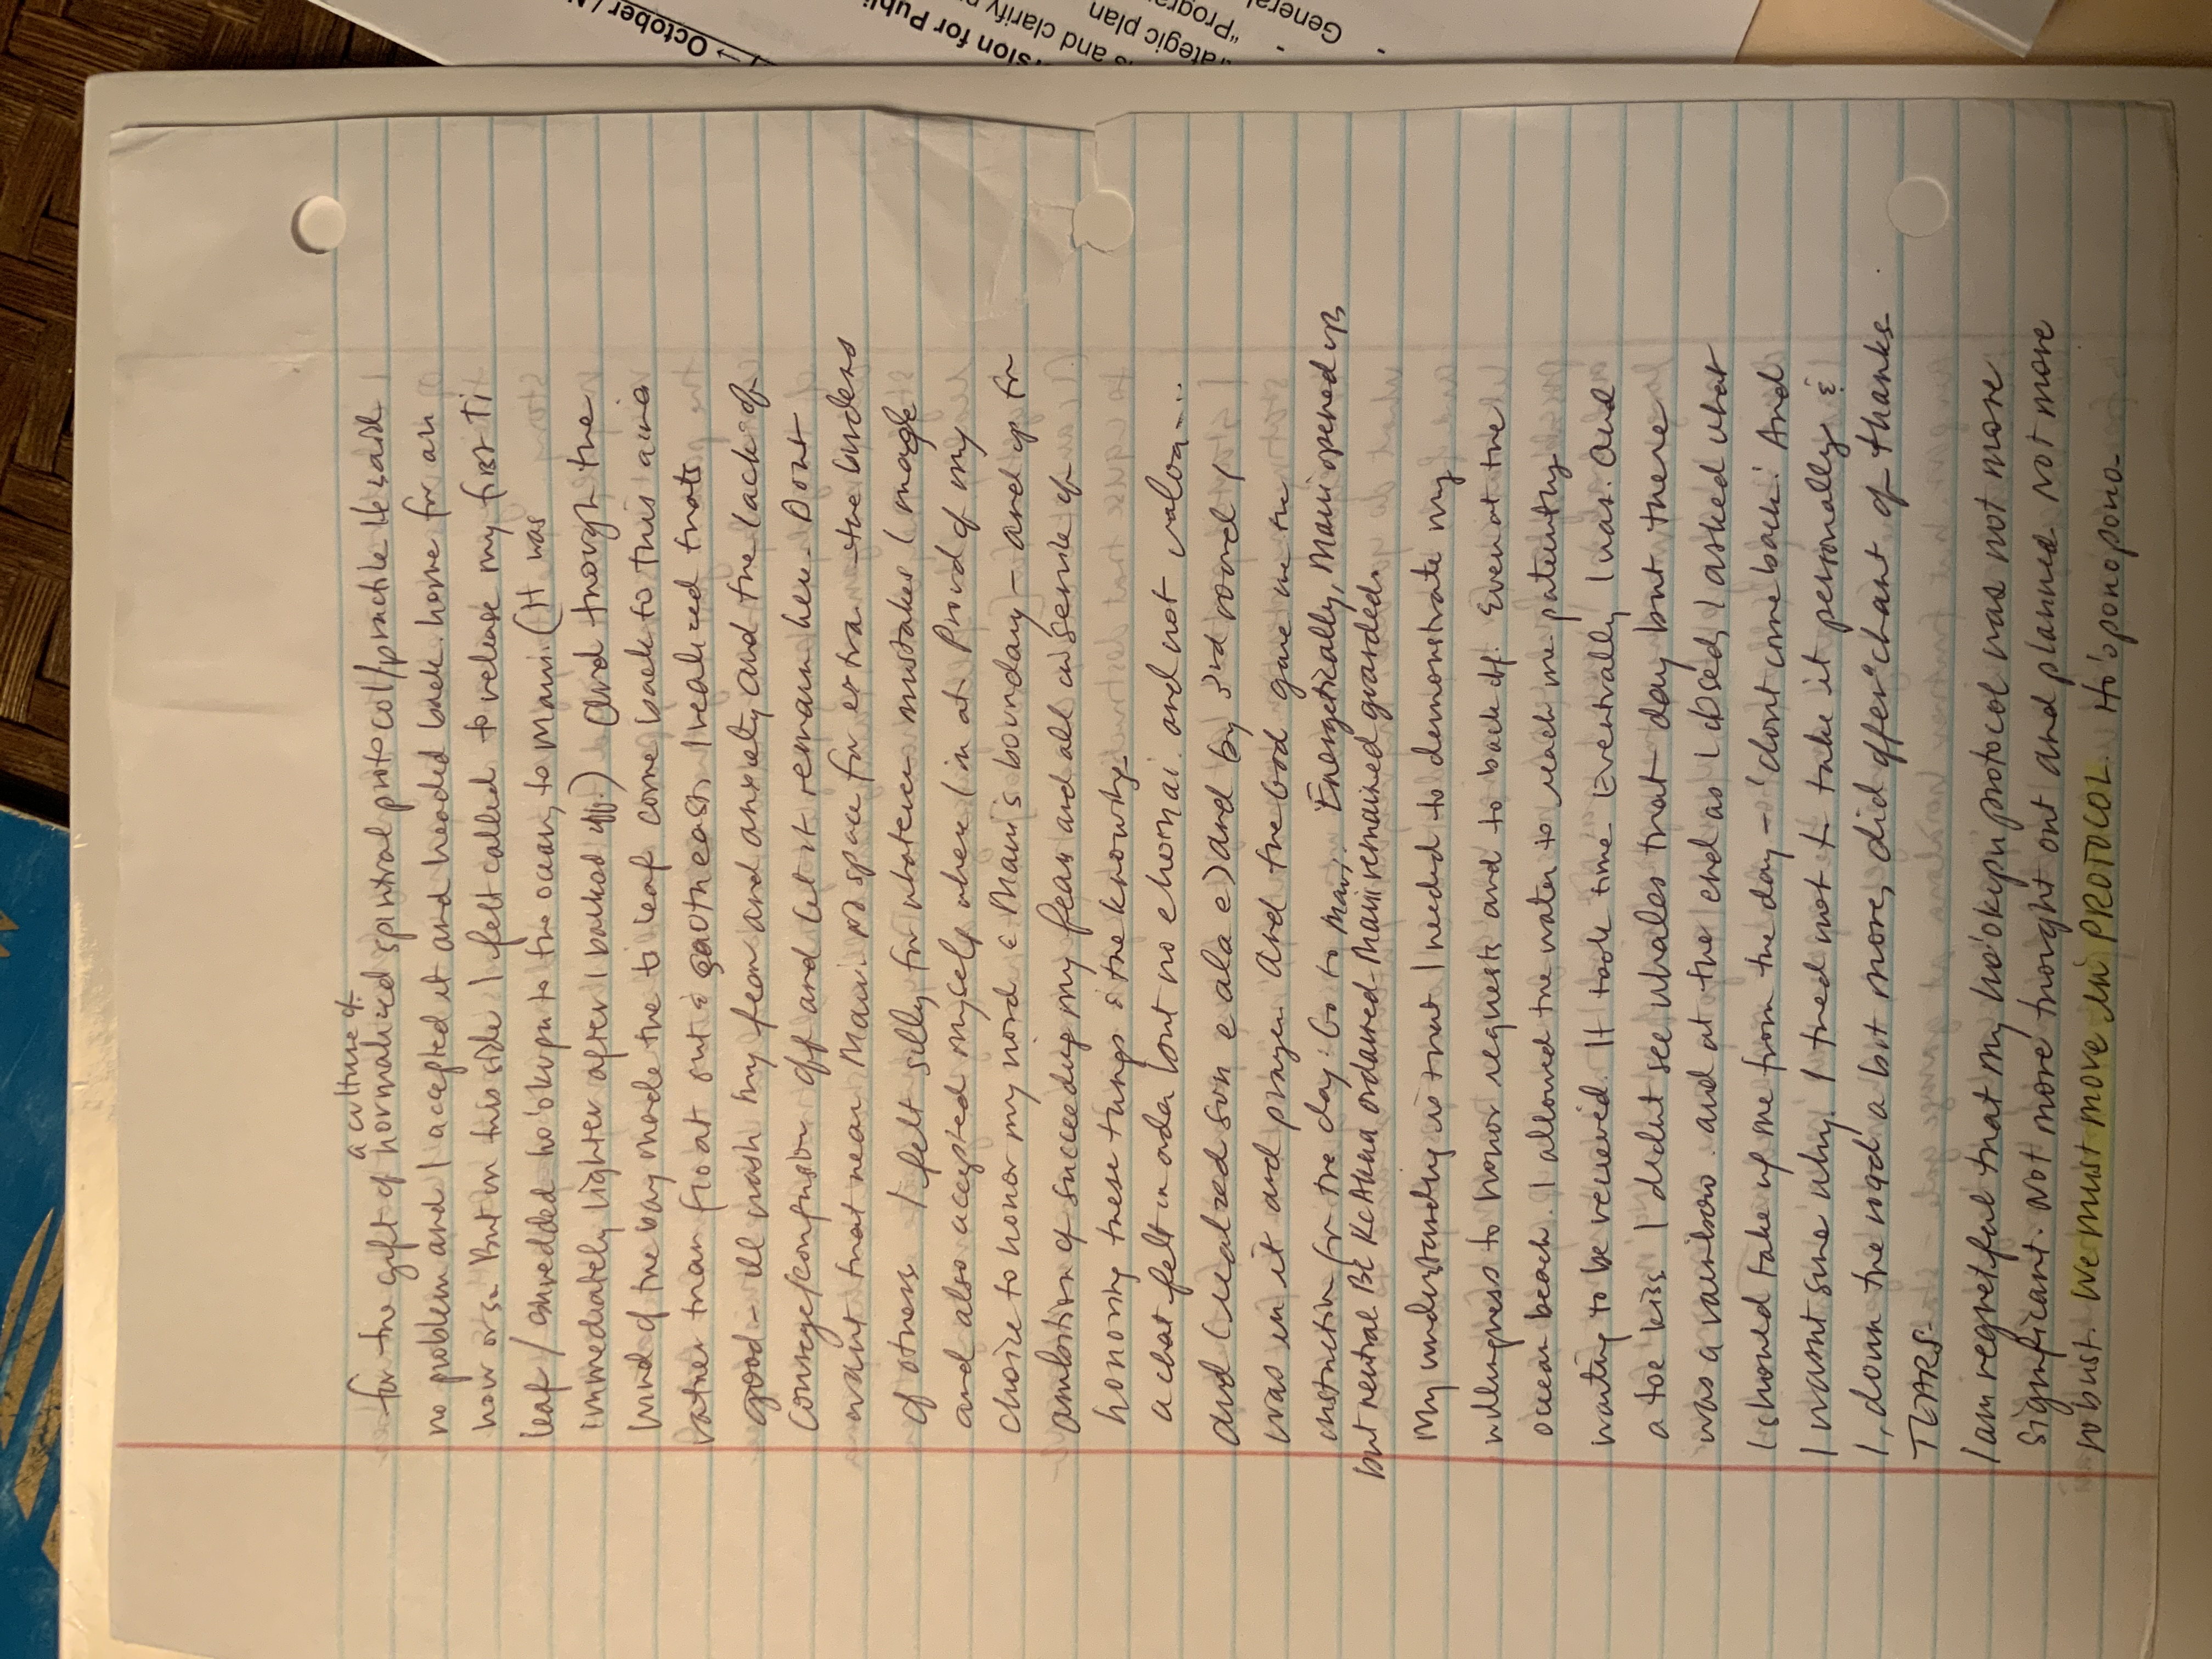 October / N
sion for Publi
s and clarify
rategic plan
"Progra
General
a culture of
for the gift of normalized spiritual protocol/practice. He said
no problem and I accepted it and headed back home for an
hour or so. But on this side I felt called to release my first Ti
leaf / shredded hoʻokupu to the ocean, to Maui. (It was
immediately lighter after I backed off.) And through the
wind of the bay made the ti leaf come back to this area
rather than float out & southeast, I realized thats
good - it'll wash my fear and anxiety and the lack of
courage/confusion off and let it remain here. Dont
want that near Maui. no space for extra - the burdens
of others. I felt silly for whatever mistakes I made
and also accepted myself where I'm at. Proud of my
choice to honor my word & Maui's boundary - and up for
ambition of succeeding my fears and all in service of
honoring these things & the knowing.
a chat felt in order but no ehornai. and not valoa...
and I realized son e ala e) and by 3rd round I
was in it and prayer. And the bod gave me the
instruction for the day: Go to Maui. Energetically, Maui opened up
but neutral BC KeAkua ordained. Maui remained guarded.
My understanding is that I needed to demonstrate my
willingness to honor requests and to back off. Even at the
ocean beach. I allowed the water to reach me patiently
waiting to be received. It took time. Eventually I was. and
a toe kiss. I didnt see whales that day but there
was a rainbow. and at the end as I closed, I asked what
I should take w/ me from the day - "dont come back." And
I wasnt sure why. I tried not to take it personally &
I, down the road a bit more, did offer "chant of thanks
TEARS.
I am regretful that my hoʻokupu protocol was not more
significant. Not more thought out and planned. Not more
robust. We must move in PROTOCOL. Hoʻoponopono.